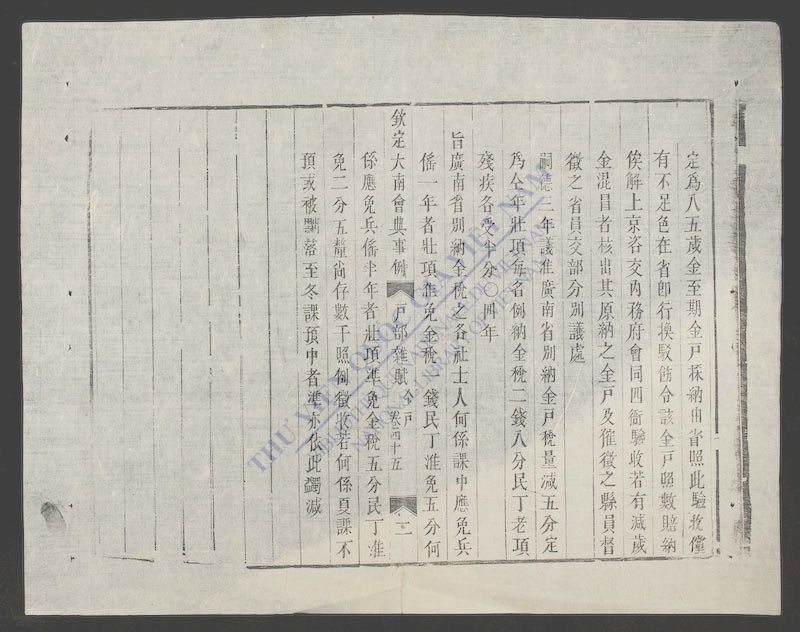 定爲八五歲金至期金戶採納由省照此驗收儻
有不足色在省卽行換駁飭令該金戶照數賠納
俟解上京咨交內務府會同四衙驗收若有減歲
金混冒者核出其原納之金戶及催徵之縣員督
徵之省員交部分別議處
嗣德三年議准廣南省別納金戶稅量減五分定
爲仝年壯項每名例納金稅二錢八分民丁老項
殘疾各受半分〇四年
旨廣南省別納金稅之各社士人何係課中應免兵
徭一年者壯項准免金稅一錢民丁准免五分何
欽定大南會典事例 戶部雜賦 金戶 卷四十五 二
係應免兵徭半年者壯項準免金稅五分民丁准
免二分五釐尚存數干照例徵收若何係夏課不
預或被黜落至冬課預中者準亦依此蠲減
THƯ VIỆN QUỐC GIA VIỆT NAM
BIBLIOTHÈQUE NATIONALE DU VIETNAM
NATIONAL LIBRARY OF VIETNAM